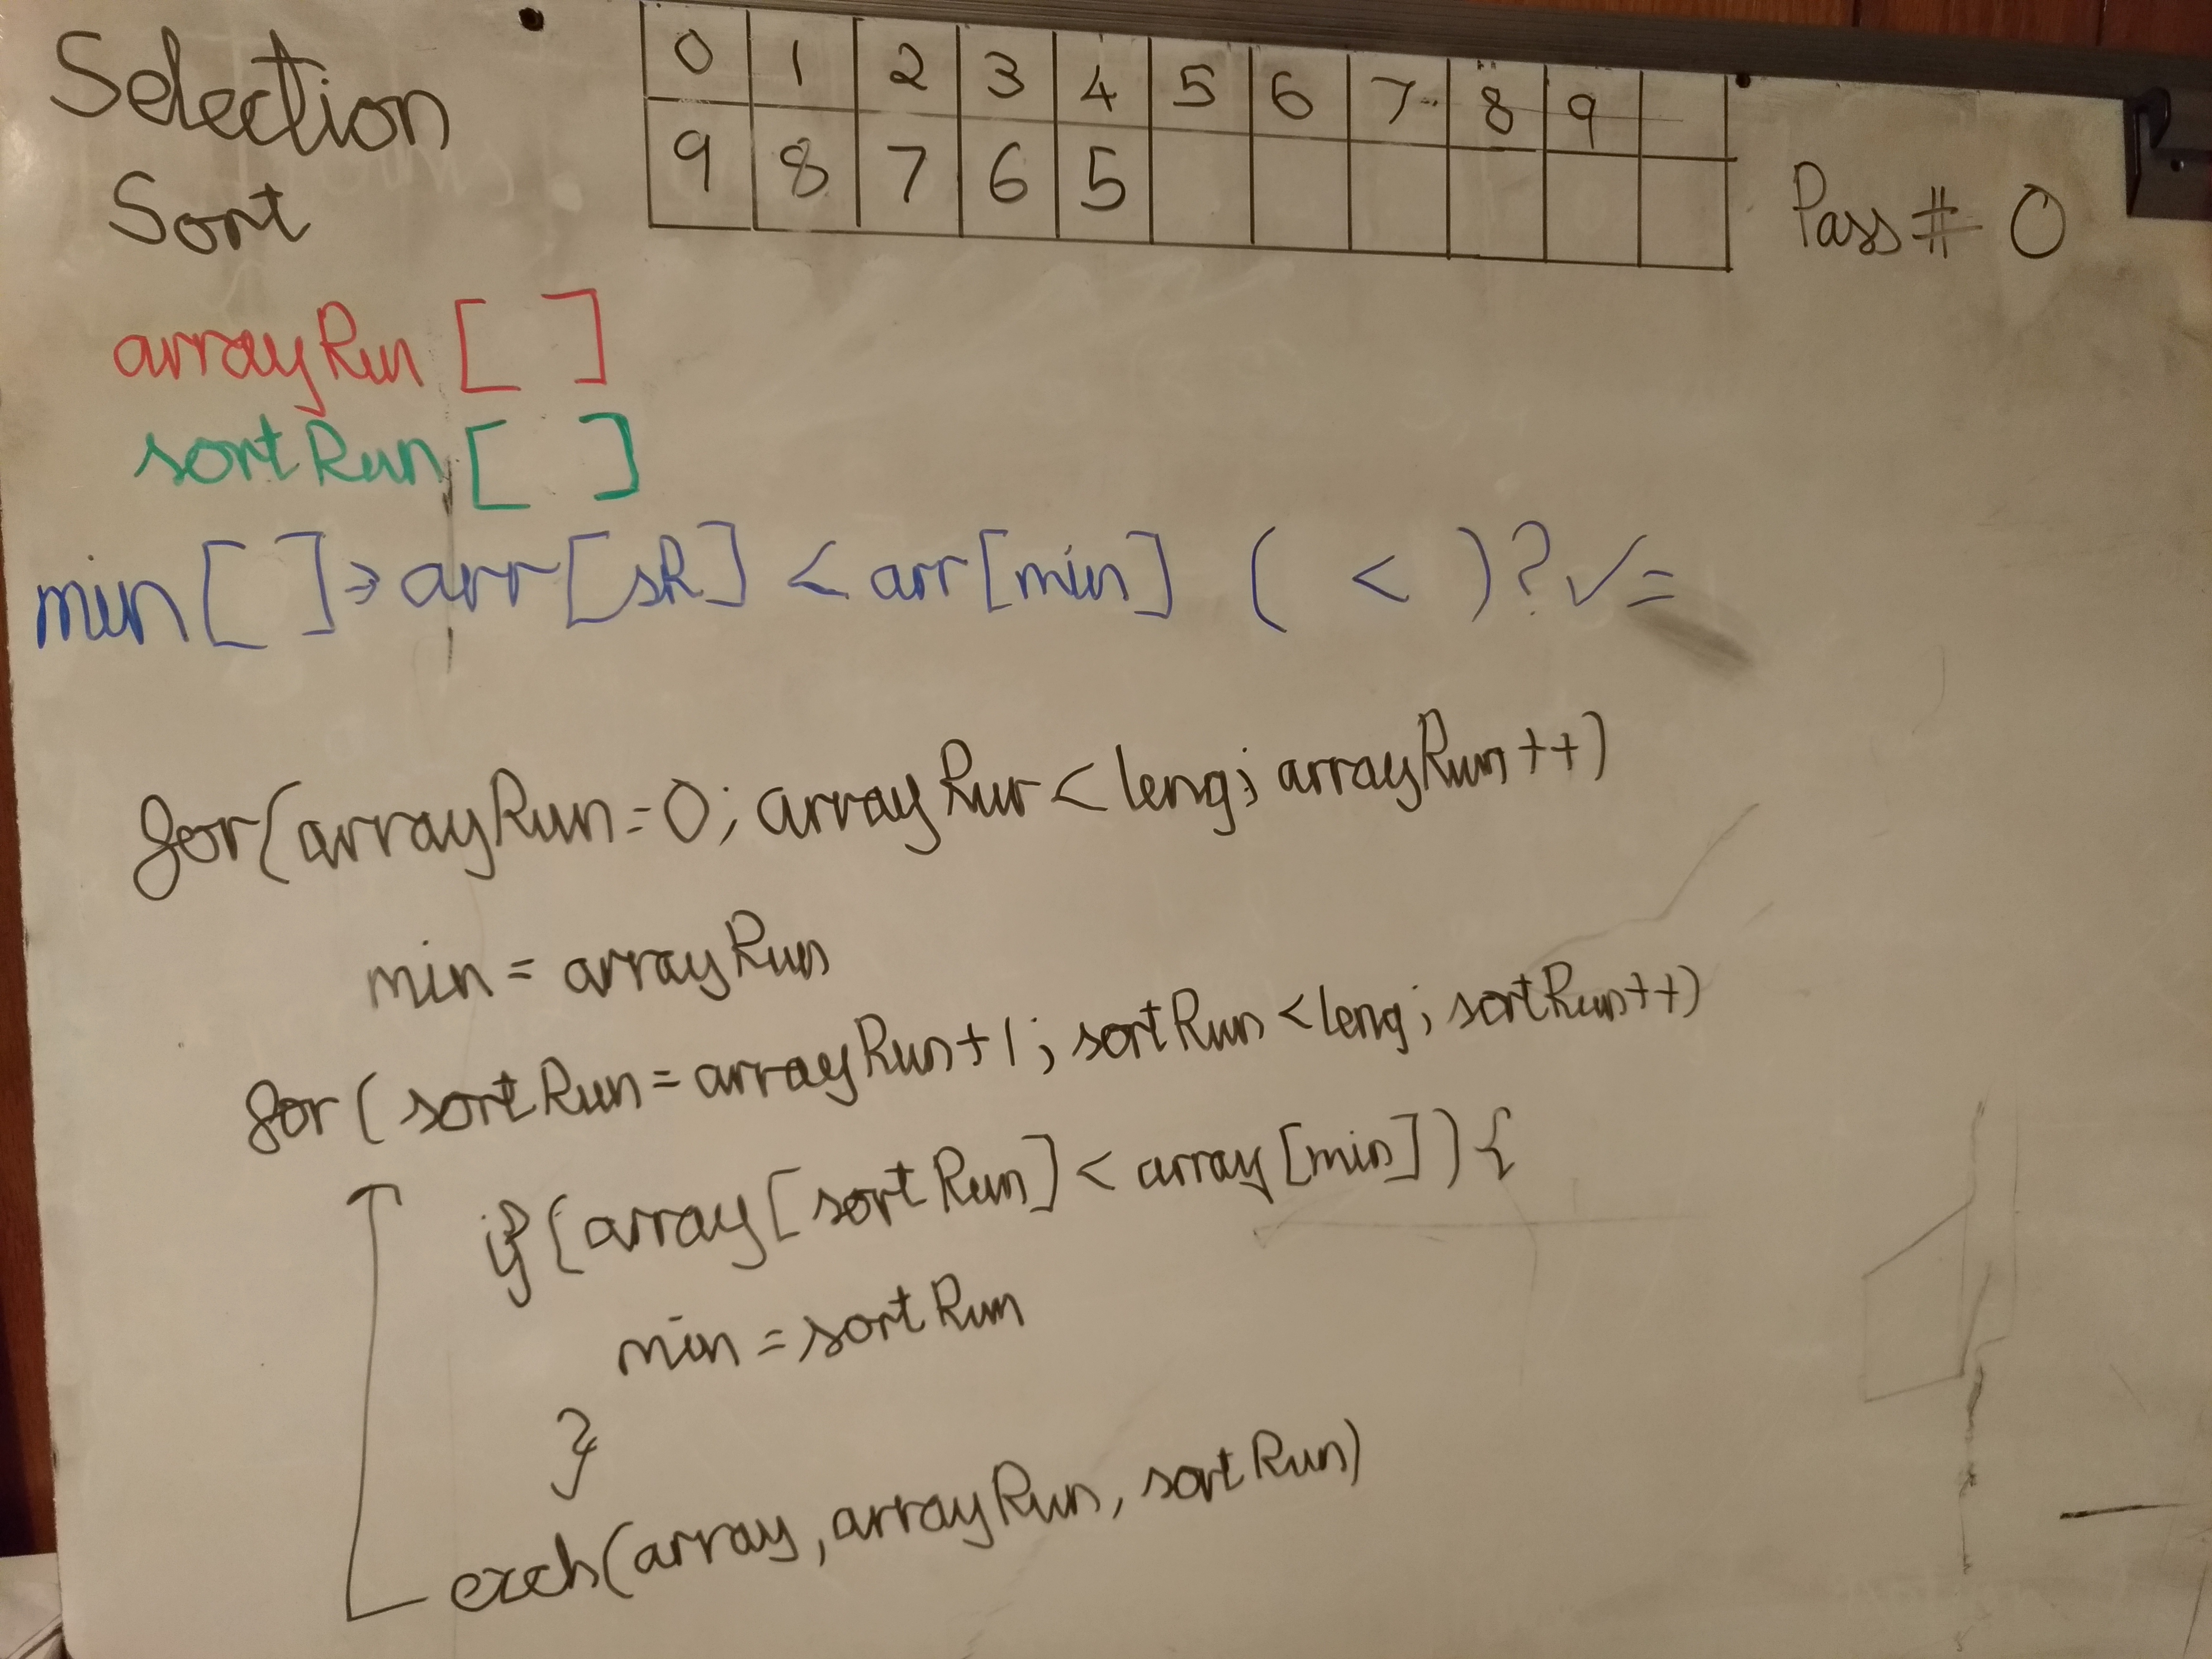 Selection
Sort
0 1 2 3 4 5 6 7 8 9
9 8 7 6 5
Pass # 0
arrayRun [ ]
sortRun [ ]
min [ ] → arr[sR] < arr[min] ( < )? ✓=
for(arrayRun=0; arrayRun<leng; arrayRun++)
min = arrayRun
for(sortRun=arrayRun+1; sortRun<leng; sortRun++)
if(array[sortRun]<array[min]){
min=sortRun
}
exch(array, arrayRun, sortRun)